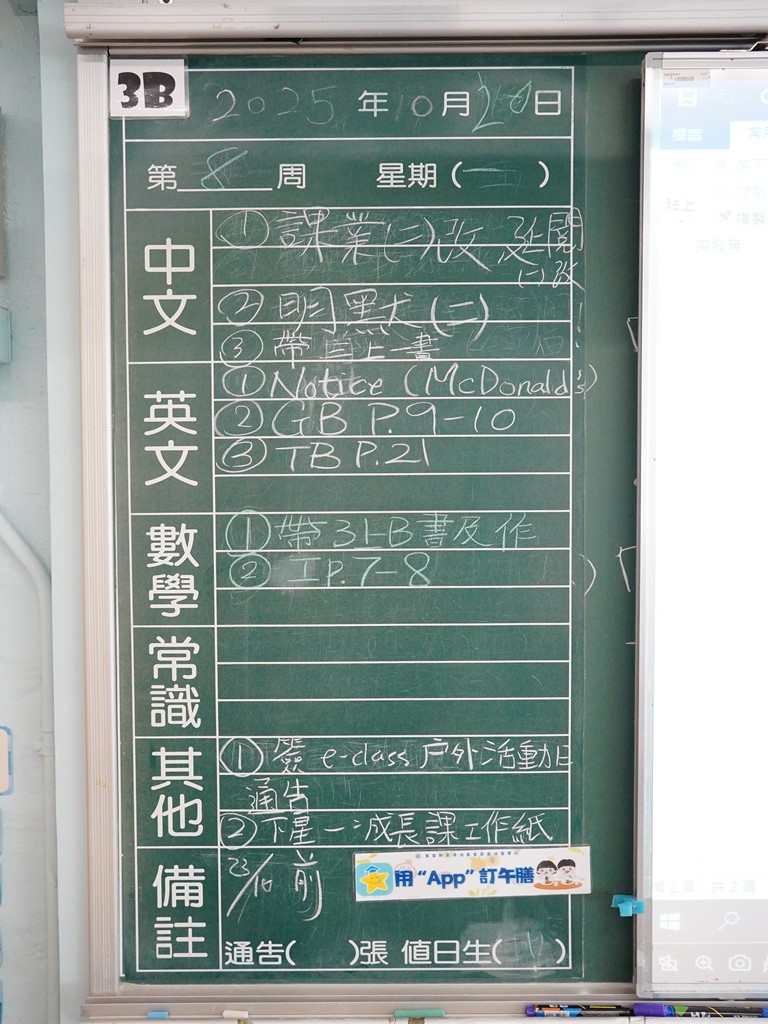 3B
2025年10月20日
第8周 星期(一)
中文
① 課業(二)改 延閱
(二)改
② 明默犬(二)
③ 帶首上書
英文
① Notice (McDonald's)
② GB P.9-10
③ TB P.21
數學
① 帶31-B書及作
② IP.7-8
常識
其他
① 簽 e-class 戶外活動日
通告
② 下星一:成長課工作紙
備註
23/10前
用"App"訂午膳
通告( )張 值日生(11)
檔案
貼上
第2頁，共2頁